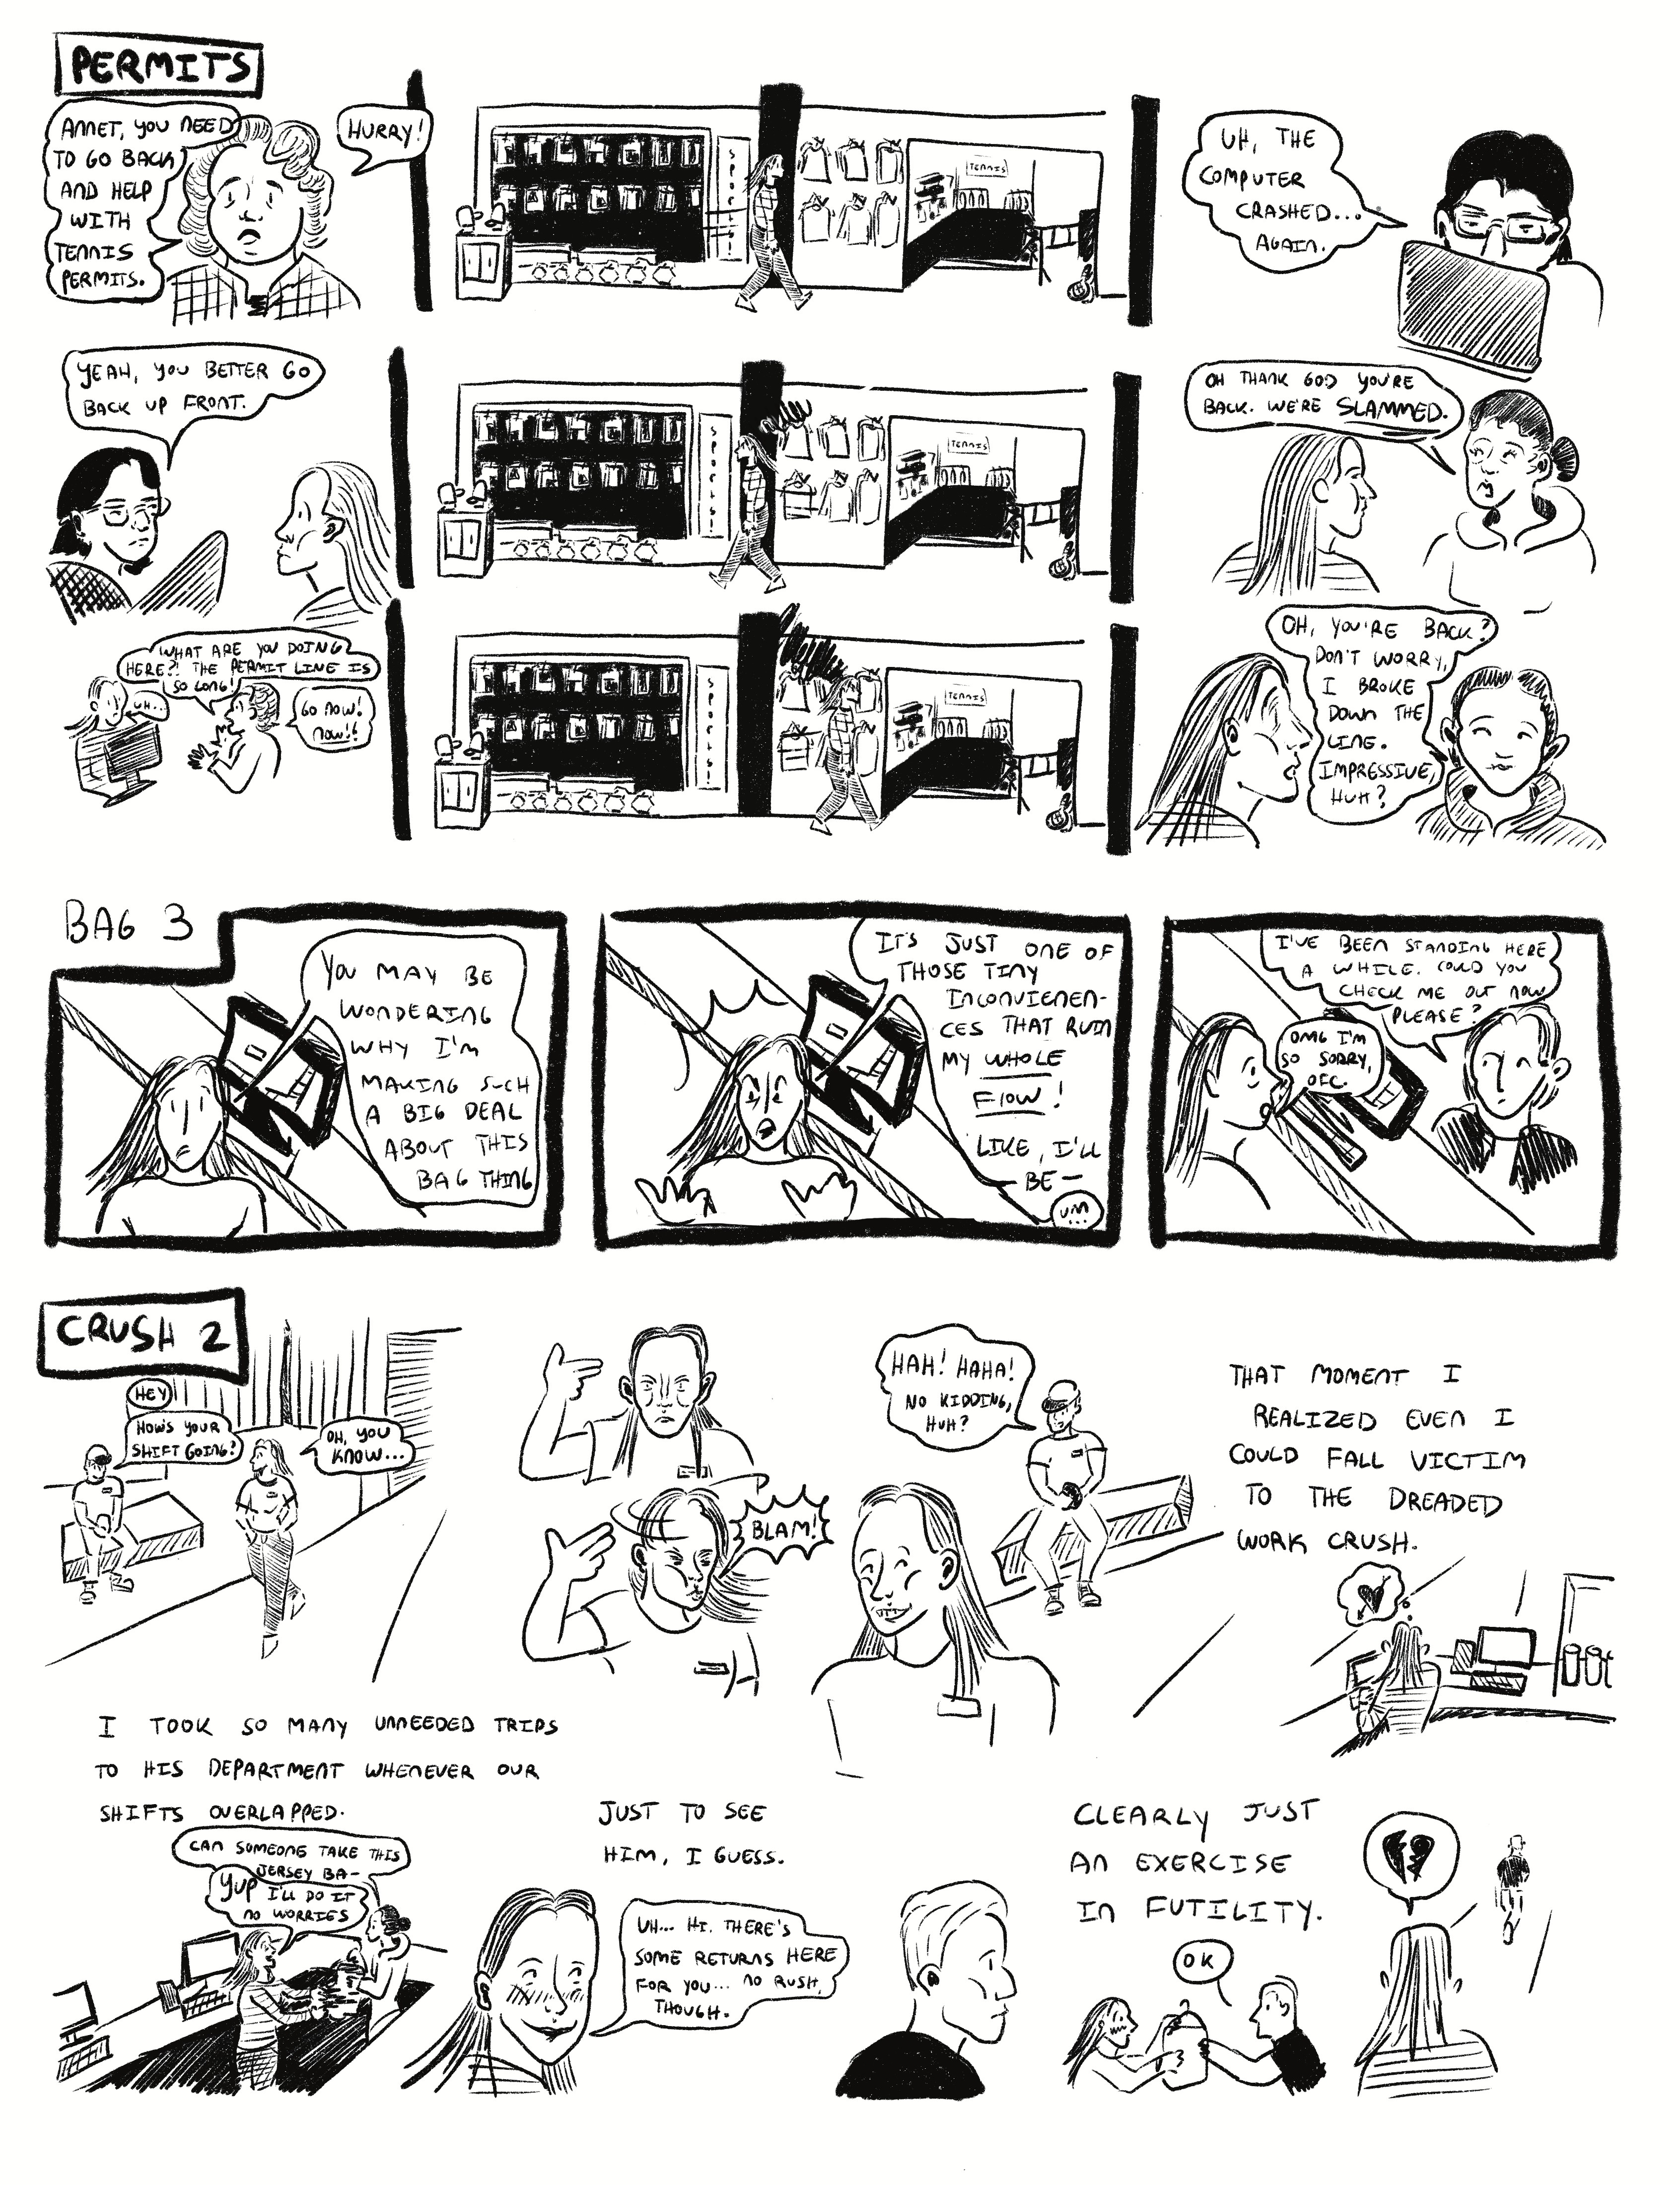 PERMITS
ANNET, YOU NEED
TO GO BACK
AND HELP
WITH
TENNIS
PERMITS.
HURRY!
SPORTS!
TENNIS
UH, THE
COMPUTER
CRASHED...
AGAIN.
YEAH, YOU BETTER GO
BACK UP FRONT.
SPORTS!
TENNIS
OH THANK GOD YOU'RE
BACK. WE'RE SLAMMED.
WHAT ARE YOU DOING
HERE?! THE PERMIT LINE IS
SO LONG!
UH...
GO NOW!
NOW!!
SPORTS!
TENNIS
OH, YOU'RE BACK?
DON'T WORRY,
I BROKE
DOWN THE
LINE.
IMPRESSIVE,
HUH?
BAG 3
YOU MAY BE
WONDERING
WHY I'M
MAKING SUCH
A BIG DEAL
ABOUT THIS
BAG THING
IT'S JUST ONE OF
THOSE TINY
INCONVIENEN-
CES THAT RUIN
MY WHOLE
FLOW!
LIKE, I'LL
BE—
UM...
I'VE BEEN STANDING HERE
A WHILE. COULD YOU
CHECK ME OUT NOW
PLEASE?
OMG I'M
SO SORRY,
OFC.
CRUSH 2
HEY
HOW'S YOUR
SHIFT GOING?
OH, YOU
KNOW...
BLAM!
HAH! HAHA!
NO KIDDING,
HUH?
THAT MOMENT I
REALIZED EVEN I
COULD FALL VICTIM
TO THE DREADED
WORK CRUSH.
I TOOK SO MANY UNNEEDED TRIPS
TO HIS DEPARTMENT WHENEVER OUR
SHIFTS OVERLAPPED.
CAN SOMEONE TAKE THIS
JERSEY BA-
YUP I'LL DO IT
NO WORRIES
JUST TO SEE
HIM, I GUESS.
UH... HI. THERE'S
SOME RETURNS HERE
FOR YOU... NO RUSH,
THOUGH.
CLEARLY JUST
AN EXERCISE
IN FUTILITY.
OK